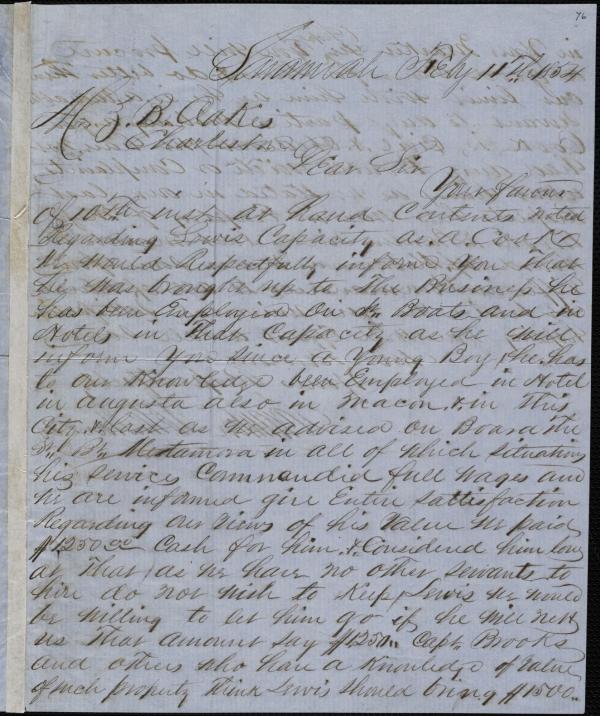 76
Savannah Feby 11th 1854
Z. B. Oakes
Charleston
Dear Sir
Your favour
of 10th inst at hand Contents noted
Regarding Lewis Capacity as a Cook
We would Respectfully inform you that
he was brought up to the Business he
has been Employed on St Boats and in
Hotels in that Capacity as he will
inform you since a Young Boy, he has
to our Knowledge been Employed in Hotel
in augusta also in Macon & in this
City & Last as we advised on Board the
St Bt Metamora in all of which situations
his services Commanded full wages and
we are informed give Entire satisfaction
Regarding our views of his Value we paid
$1250 Cash for him & Considered him low
at that, as we have no other servants to
hire do not wish to Keep Lewis we would
be willing to let him go if he will nett
us that amount say $1250.. Capt Brooks
and others who have a Knowledge of value
of such property think Lewis should bring $1500..